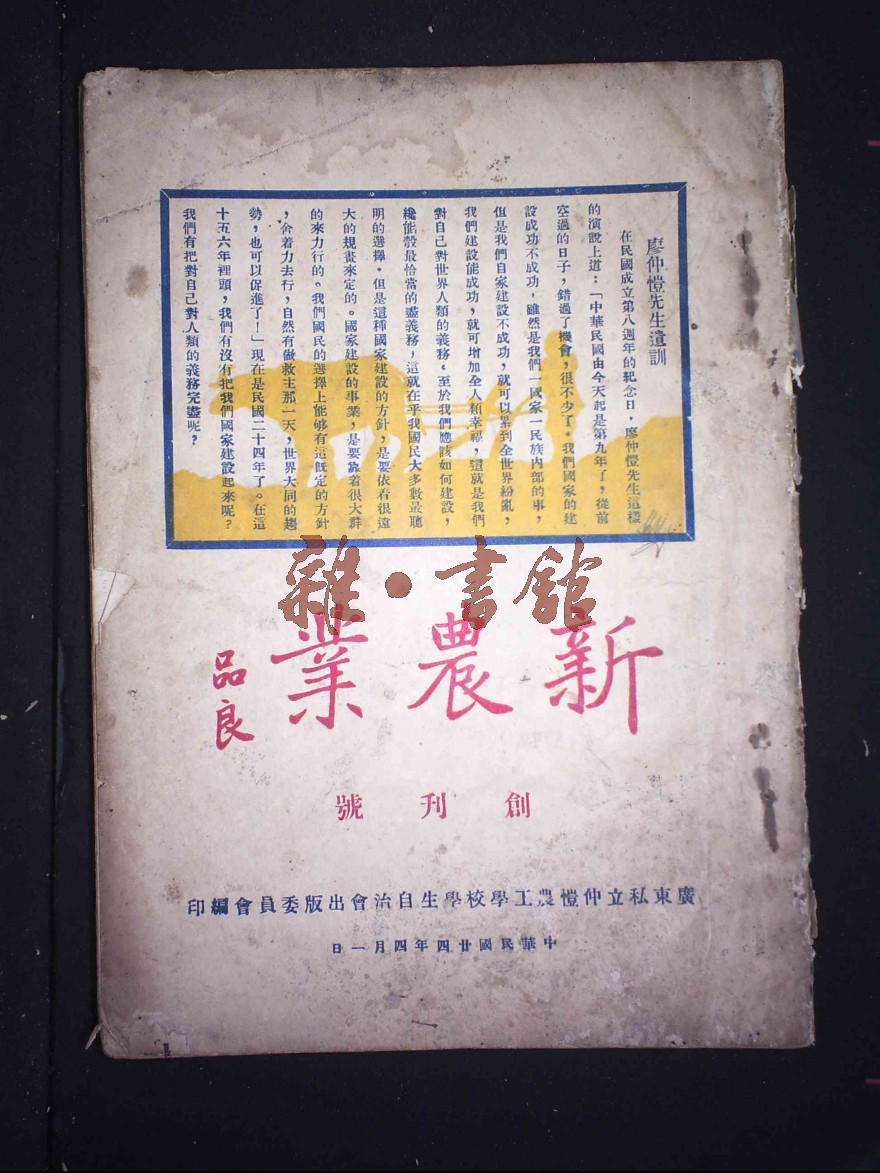 廖仲愷先生遺訓
在民國成立第八週年的紀念日，廖仲愷先生這樣
的演說上道：「中華民國由今天起是第九年了，從前
空過的日子，錯過了機會，很不少了。我們國家的建
設成功不成功，雖然是我們一國家一民族內部的事，
但是我們自家建設不成功，就可以累到全世界紛亂，
我們建設能成功，就可增加全人類幸福，這就是我們
對自己對世界人類的義務。至於我們應該如何建設，
纔能彀最恰當的盡義務，這就在乎我國民大多數最聰
明的選擇。但是這種國家建設的方針，是要依看很遠
大的規畫來定的。國家建設的事業，是要靠着很大群
的來力行的。我們國民的選擇上能够有這旣定的方針
，舍着力去行，自然有做救主那一天，世界大同的趨
勢，也可以促進了！」現在是民國二十四年了。在這
十五六年裡頭，我們有沒有把我們國家建設起來呢？
我們有把對自己對人類的義務完盡呢？
雜·書館
新農業
品良
創刊號
廣東私立仲愷農工學校學生自治會出版委員會編印
中華民國廿四年四月一日